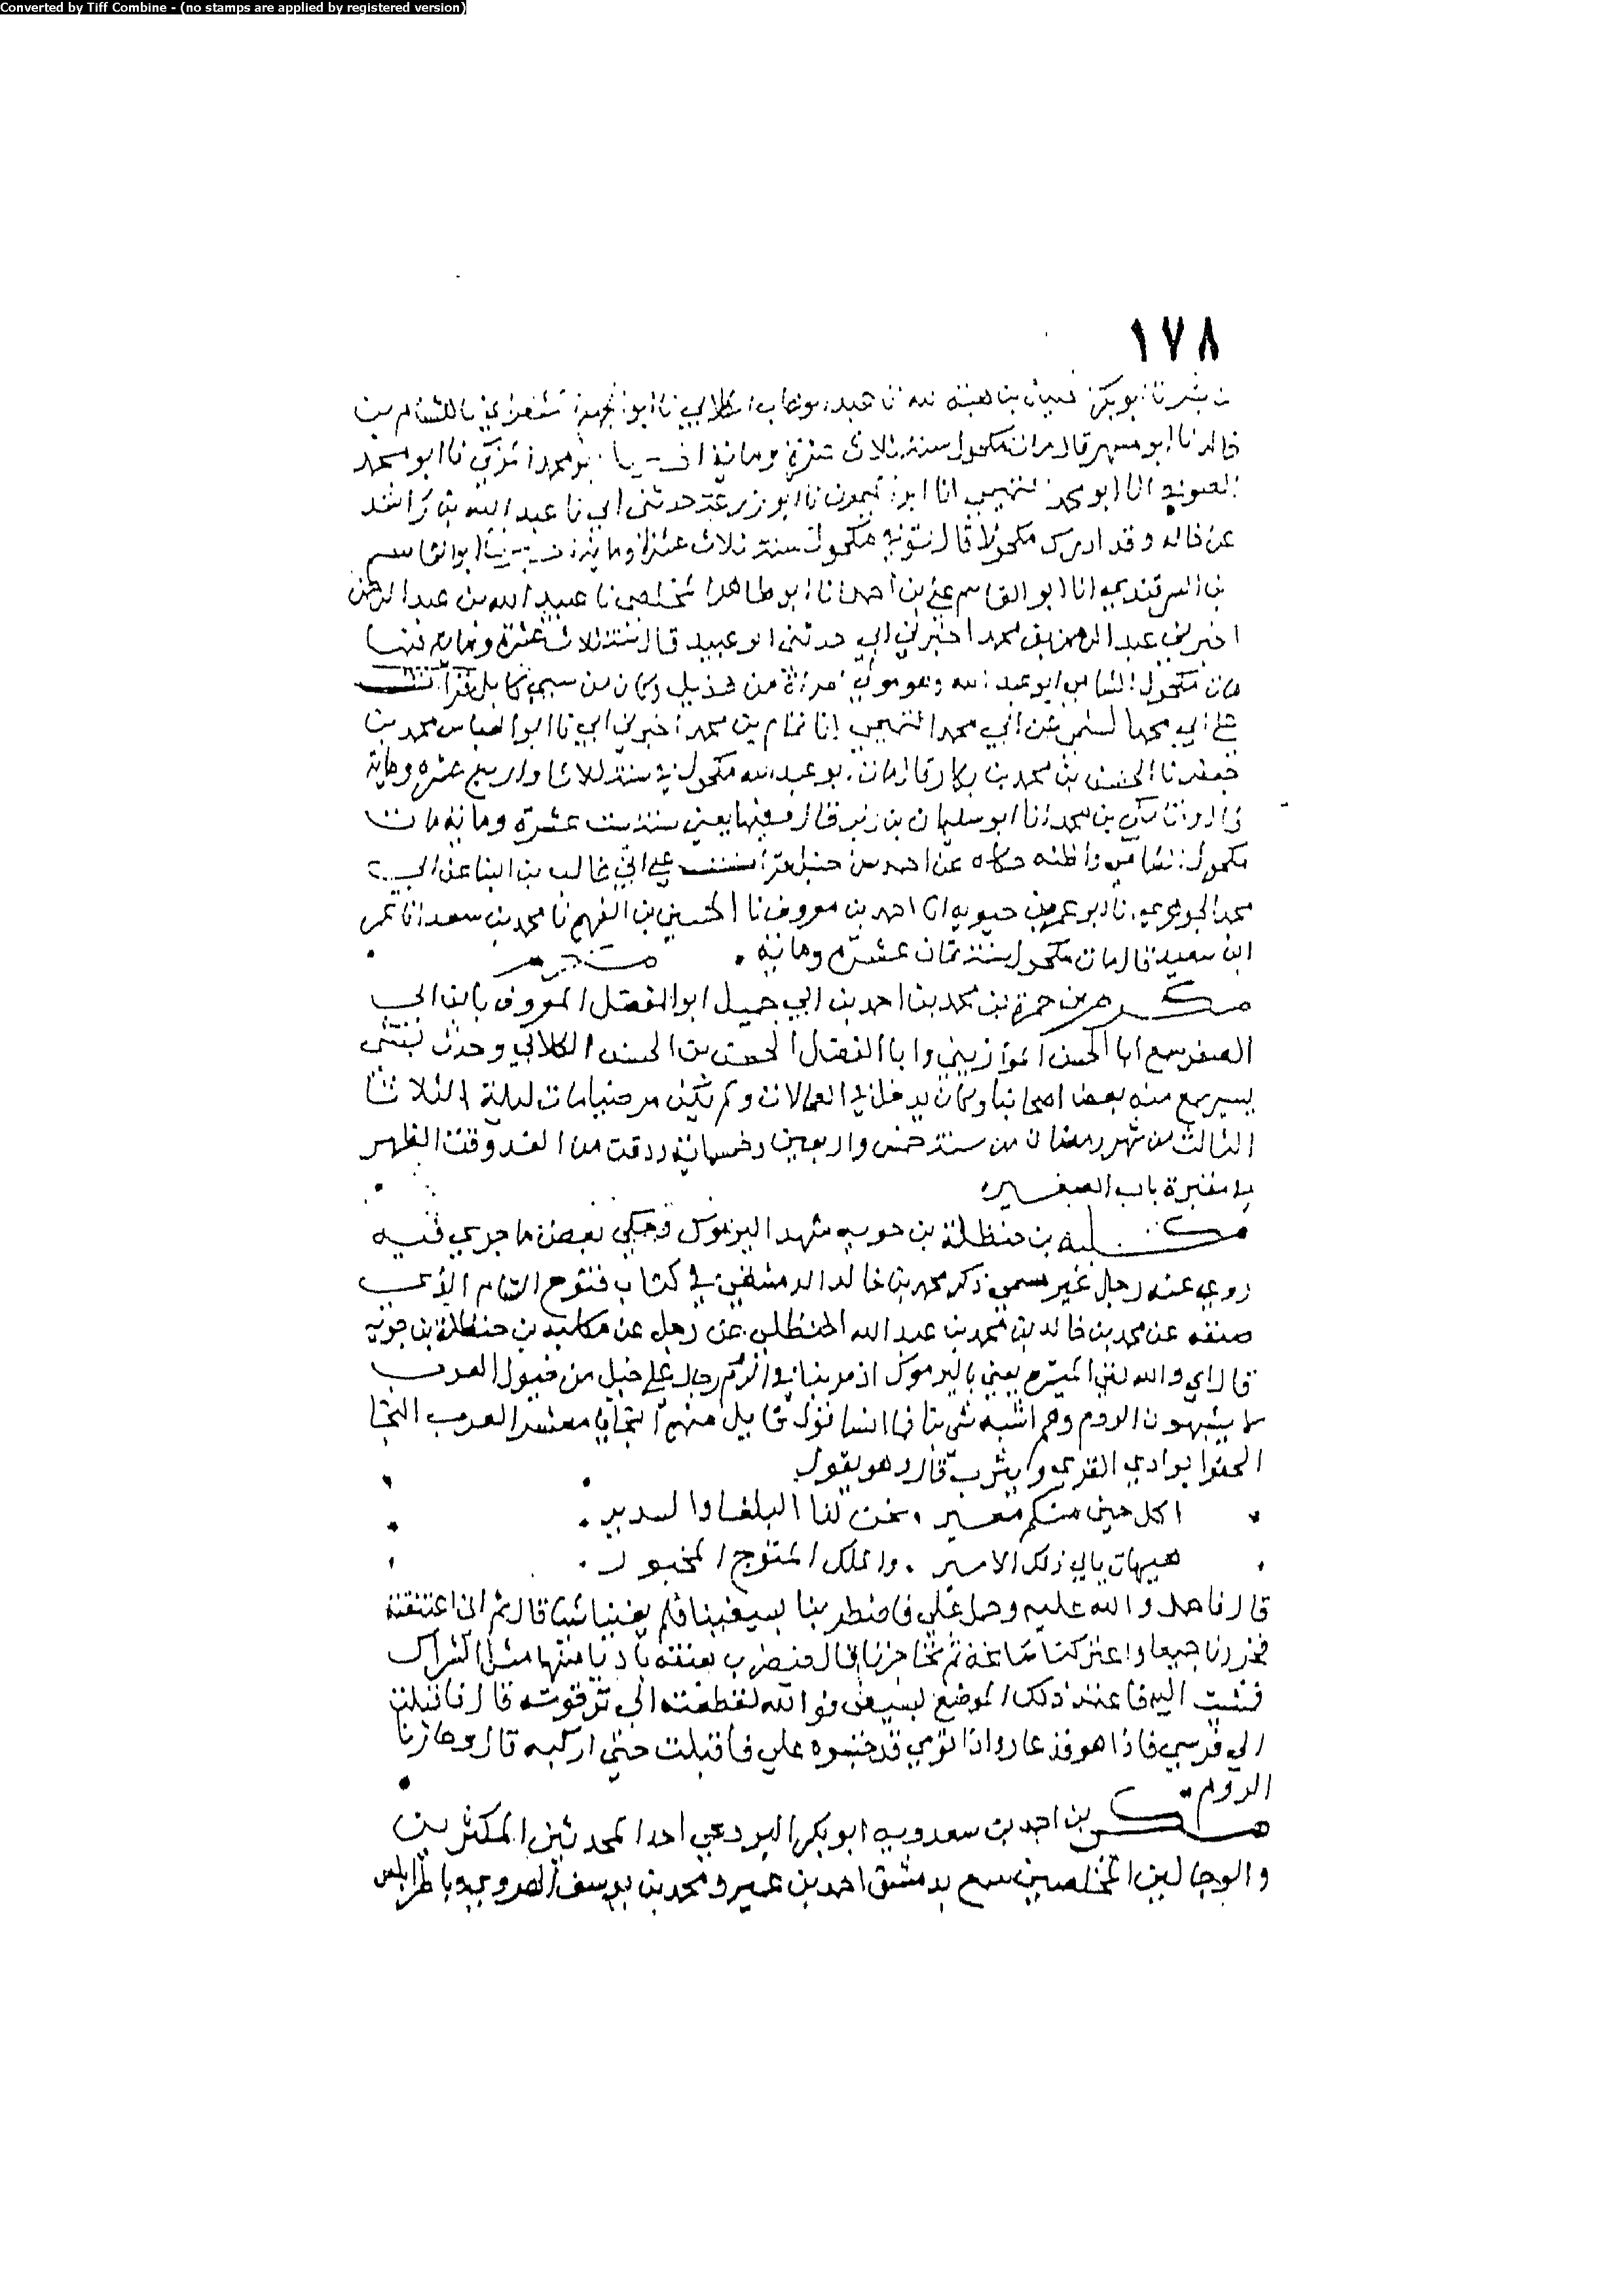 Converted by Tiff Combine - (no stamps are applied by registered version)
١٧٨
خالد نا ابو مسهر قال مات مكحول سنة ثلاث عشرة ومائة ابو محمد نا ابو محمد
انا ابو محمد التميمي انا ابو الميمون نا ابو زرعة حدثني ابي نا عبد الله بن راشد
عن خاله وقد ادرك مكحولا قال توفي مكحول سنة ثلاث عشرة ومائة ابو القاسم
بن السمرقندي انا ابو القاسم علي بن احمد انا ابو طاهر المخلص نا عبيد الله بن عبد الرحمن
اخبرني عبد الرحمن بن محمد اخبرني ابي حدثني ابو عبيد قال سنة ثلاث عشرة ومائة فيها
مات مكحول الشامي ابو عبد الله وهو مولى امراة من هذيل وكان من سبي كابل قرأت
على ابي محمد السلمي عن ابي محمد التميمي انا تمام بن محمد اخبرني ابي نا ابو العباس محمد بن
جعفر نا الحسن بن محمد بن بكار قال مات ابو عبد الله مكحول في سنة ثلاث او اربع عشرة ومائة
بن محمد انا ابو سليمان بن زبر قال وفيها يعني سنة ست عشرة ومائة مات
مكحول الشامي واظنه حكاه عن احمد بن حنبل قرأت على ابي غالب بن البنا عن ابي
محمد الجوهري انا ابو عمر بن حيويه انا احمد بن معروف نا الحسين بن الفهم نا محمد بن سعد انا عمر
ابن سعيد قال مات مكحول سنة ثمان عشرة ومائة .
بن حمزة بن محمد بن احمد بن ابي جميل ابو المفضل المعروف بابن ابي
الصقر سمع ابا الحسن الموازيني وابا الفضل الحسن بن الحسن الكلابي وحدث بشي
يسير سمع منه بعض اصحابنا وكان يدخل في العمالات ولم يكن مرضيا مات ليلة الثلاثا
الثالث من شهر رمضان من سنة خمس واربعين وخمسمائة ودفن من الغد وقت الظهر
في مقبرة باب الصغير
مكلبه بن حنظلة بن حويه شهد اليرموك وحكى بعض ما جرى فيه
روى عنه رجل غير مسمى ذكر محمد بن خالد الدمشقي في كتاب فتوح الشام الذي
صنفه عن محمد بن خالد بن محمد بن عبد الله الحنظلي عن رجل عن مكلبه بن حنظلة بن حويه
قال اي والله لفي الميسرة يعني باليرموك اذ مر بنا من الروم رجال على خيل من خيول العرب
لا يشبهون الروم وهم اشبه شي بنا فما انسا قول قايل منهم النجا يا معشر العرب النجا
الحقوا بوادي القرى ويثرب قال وهو يقول
اكل حين منكم مغير . نحن لنا البلقا والسدير .
هيهات يابى ذلك الامير . والملك المتوج المحبور .
قال فاحمل والله عليه وحمل علي فاضطربنا بسيفينا فلم يغنيا شيا قال ثم اني اعتنقته
فخررنا جميعا واعتركنا ساعة ثم تحاجزنا قال فنضرب بعنقه باديا منها مثل الشراك
فمشيت اليه فاعتمد ذلك الموضع بسيفي فوالله لقطعته الى ترقوته قال فاقبلت
الى فرسي فاذا هو قد عار واذا قومي قد حبسوه علي فاقبلت حتى اركبه قال وحازنا
الروم
مكي بن احمد بن سعدويه ابو بكر البردعي احد المحدثين المكثرين
والرحالين المخلصين سمع بدمشق احمد بن عمير ومحمد بن يوسف الهروي وباطرابلس